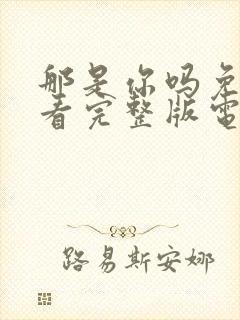 那是你吗免
看完整版電
路易斯安娜